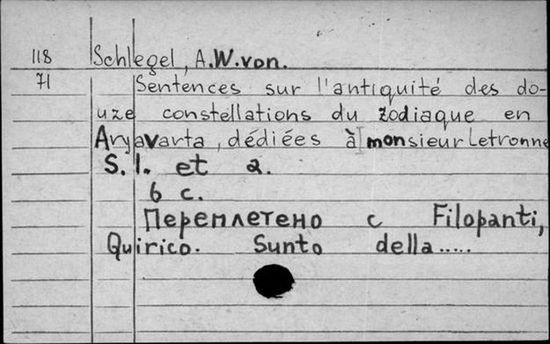 118 Schlegel, A.W.von.
71 Sentences sur l'antiquité des do-
uze constellations du zodiaque en
Aryavarta, dédiées à monsieur Letronne
S. l. et a.
6 с.
Переплетено с Filopanti,
Quirico. Sunto della.....